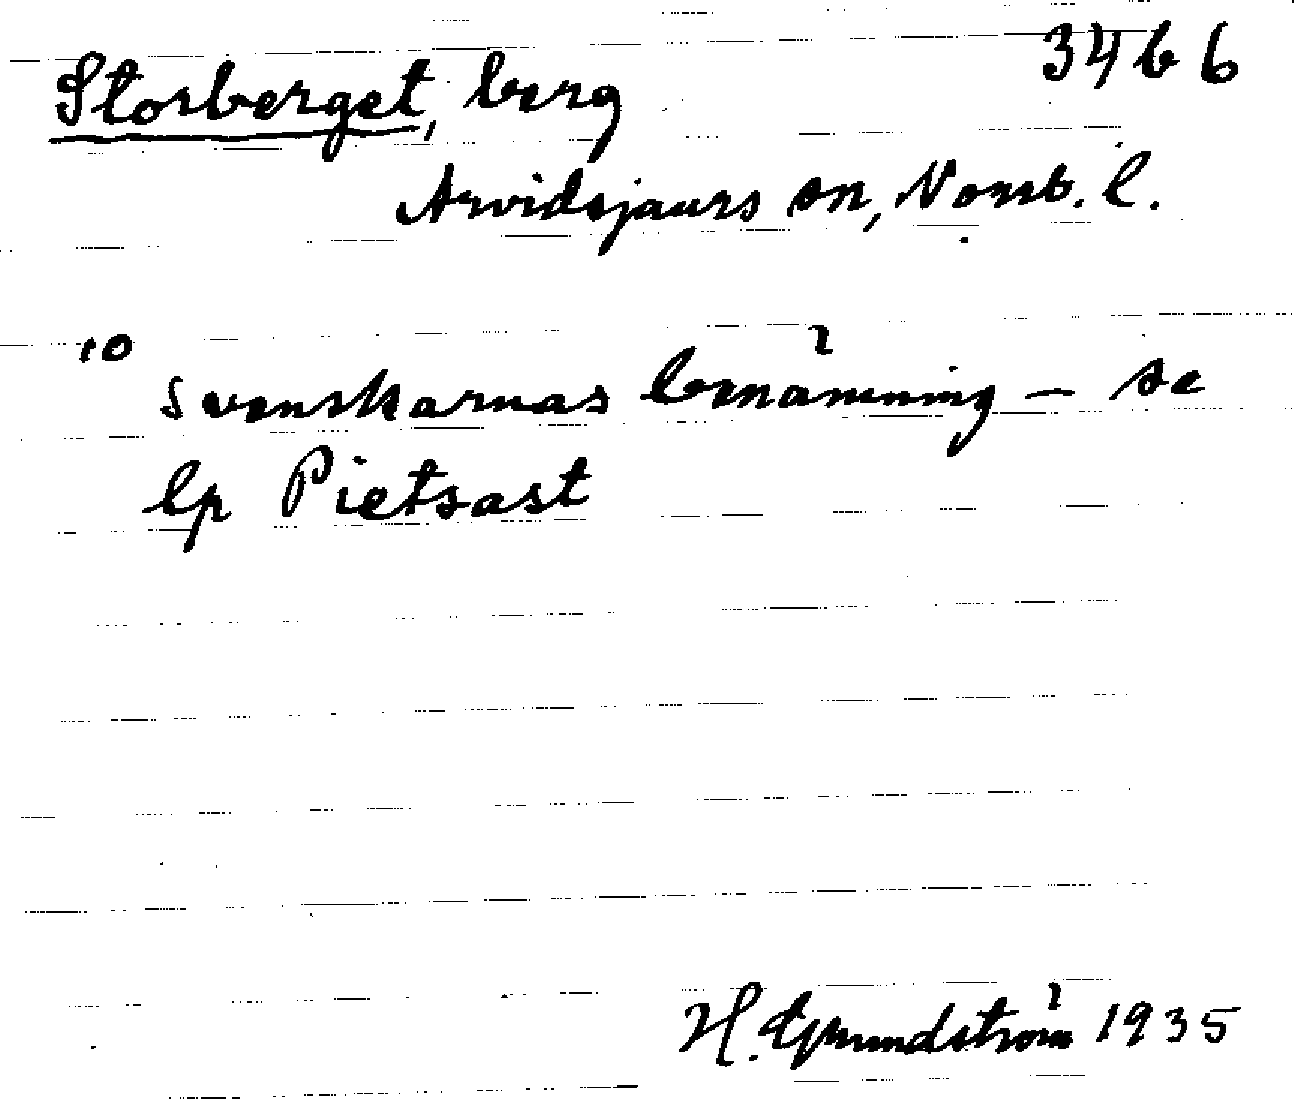 Storberget, berg 3466
Arvidsjaurs sn, Norrb. l.
10
svenskarnas benämning – se
lp Pietsast
H. Grundström 1935